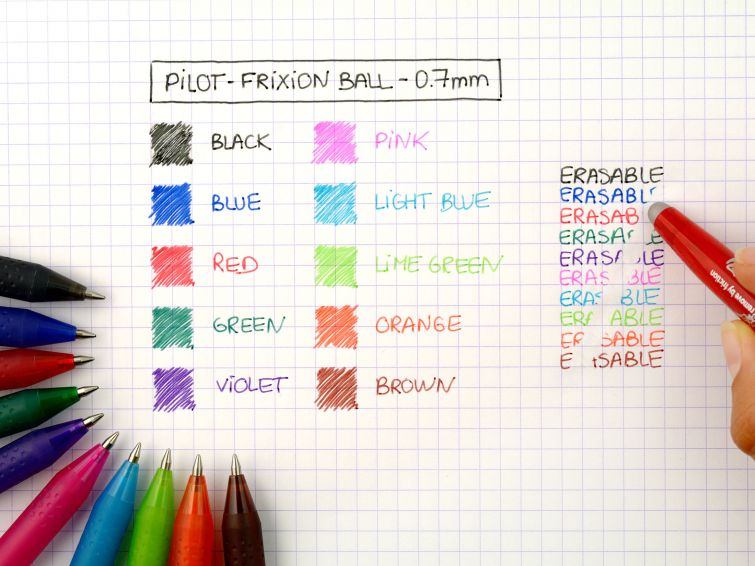 PiLOT-FRiXiON BALL-0.7mm
BLACK
BLUE
RED
GREEN
ViOLET
PiNK
LiGHT BLUE
LiME GREEN
ORANGE
BROWN
ERASABLE
ERASABL
ERASAB
ERASA LE
ERAS LE
ERAS BLE
ERA BLE
ER ABLE
E SABLE
E SABLE
remove by friction